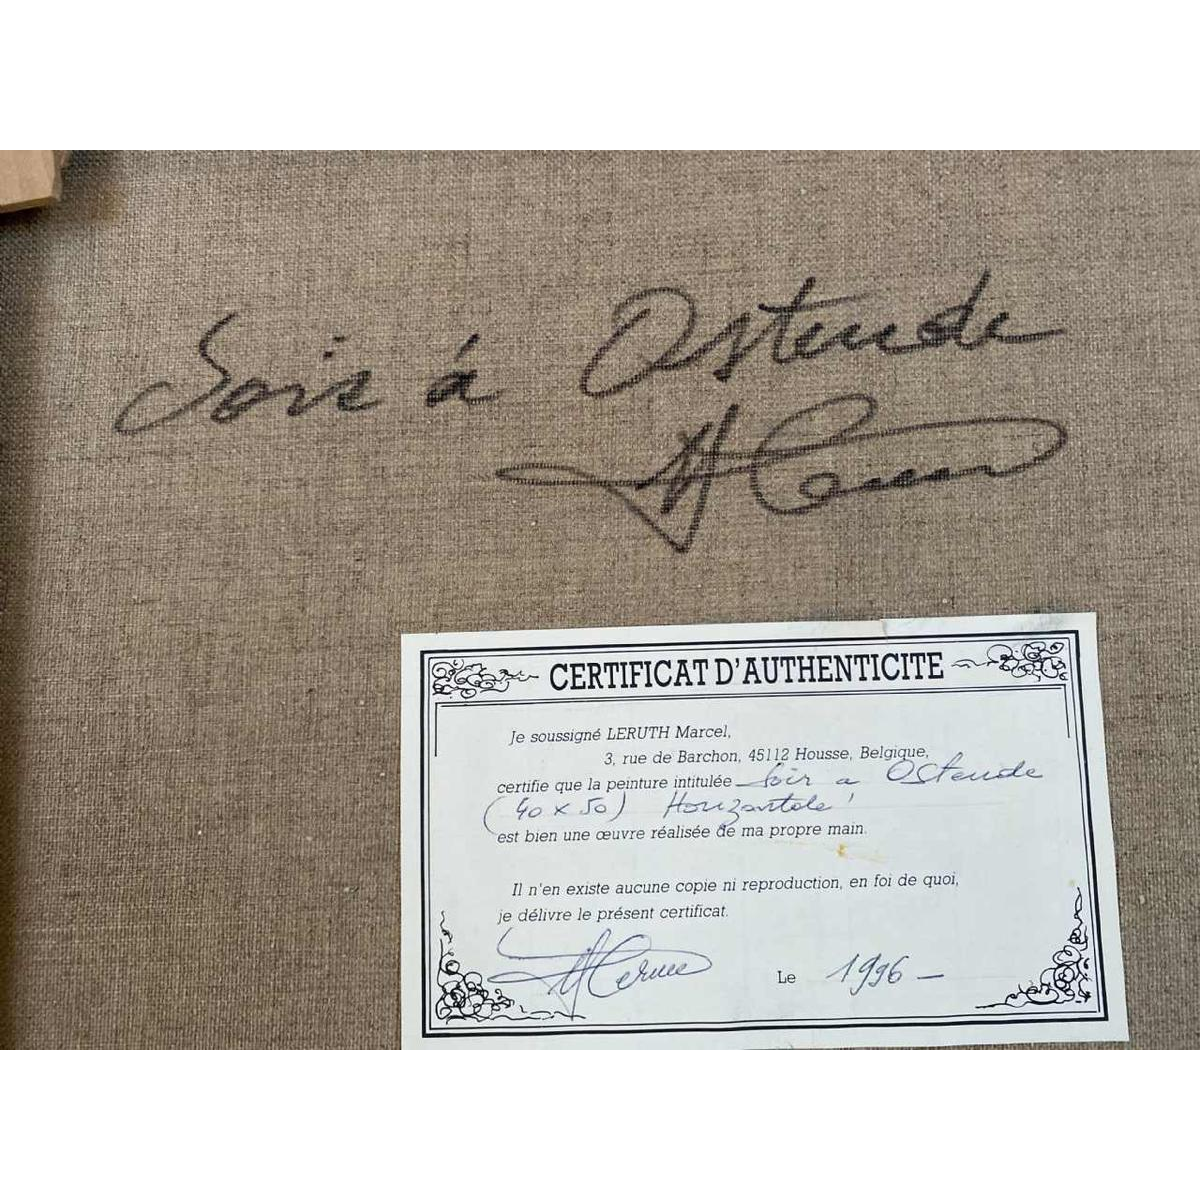 Soir á Ostende
CERTIFICAT D'AUTHENTICITE
Je soussigné LERUTH Marcel,
3, rue de Barchon, 45112 Housse, Belgique,
certifie que la peinture intitulée Soir a Ostende
(40 x 50) Horizontale
est bien une œuvre réalisée de ma propre main.
Il n'en existe aucune copie ni reproduction, en foi de quoi,
je délivre le présent certificat.
Le 1996 -